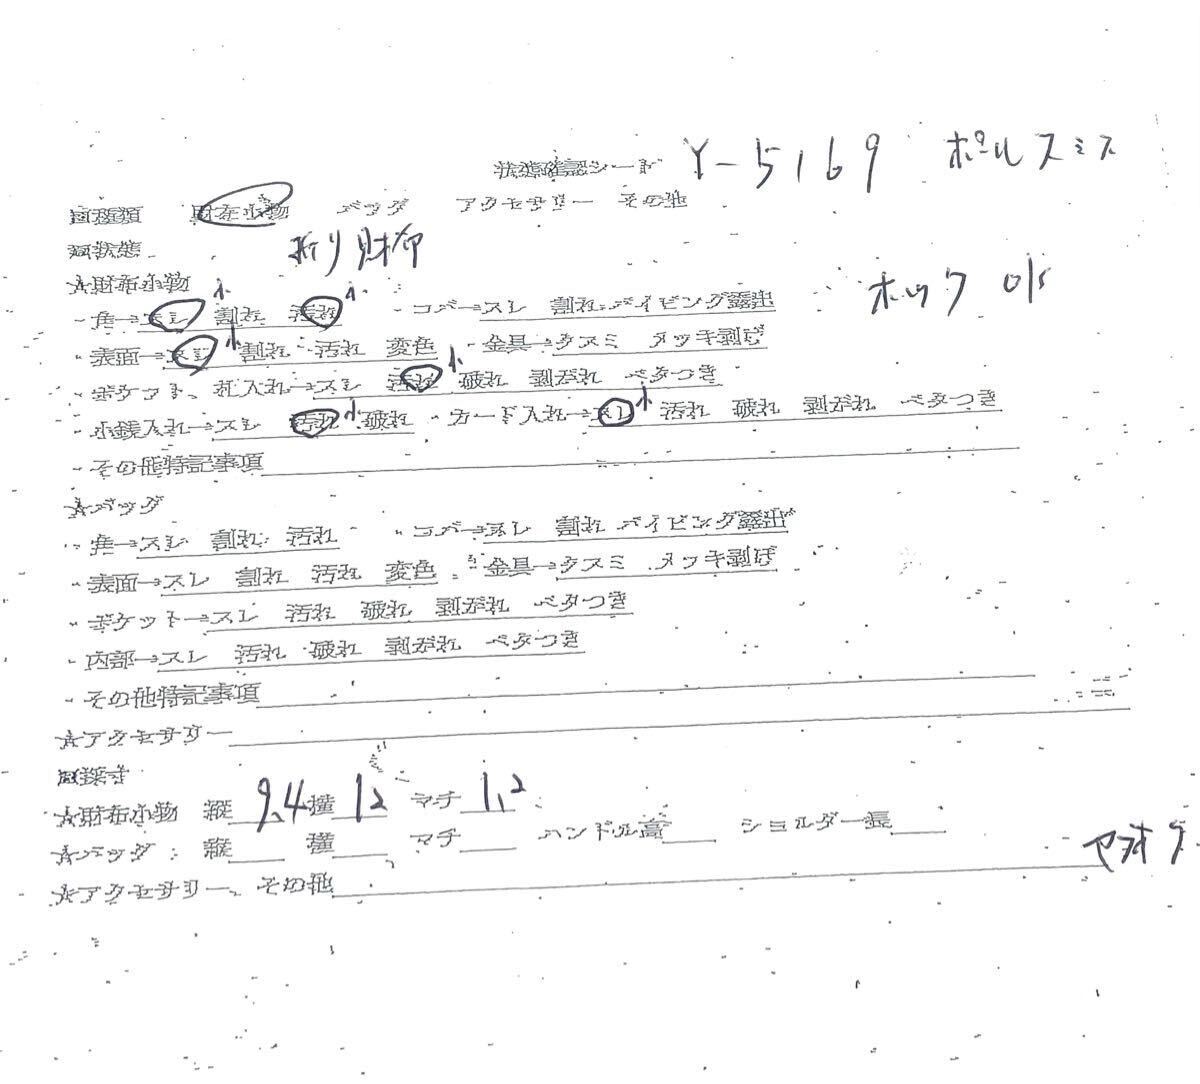 状態確認シート Y-5169 ポールスミス
□種類 財布小物 バッグ アクセサリー その他
□状態 折り財布
☆財布小物 ホック
・角→スレ小 割れ 汚れ小 ・コバ→スレ 割れ パイピング露出
・表面→スレ小 割れ 汚れ 変色 ・金具→クスミ メッキ剥げ
・ポケット、札入れ→スレ 汚れ小 破れ 剥がれ ベタつき
・小銭入れ→スレ 汚れ小 破れ ・カード入れ→スレ小 汚れ 破れ 剥がれ ベタつき
・その他特記事項
☆バッグ
・角→スレ 割れ 汚れ ・コバ→スレ 割れ パイピング露出
・表面→スレ 割れ 汚れ 変色 ・金具→クスミ メッキ剥げ
・ポケット→スレ 汚れ 破れ 剥がれ ベタつき
・内部→スレ 汚れ 破れ 剥がれ ベタつき
・その他特記事項
☆アクセサリー
□採寸
☆財布小物 縦9.4 横12 マチ1.2
☆バッグ:縦 横 マチ ハンドル高 ショルダー長
☆アクセサリー、その他